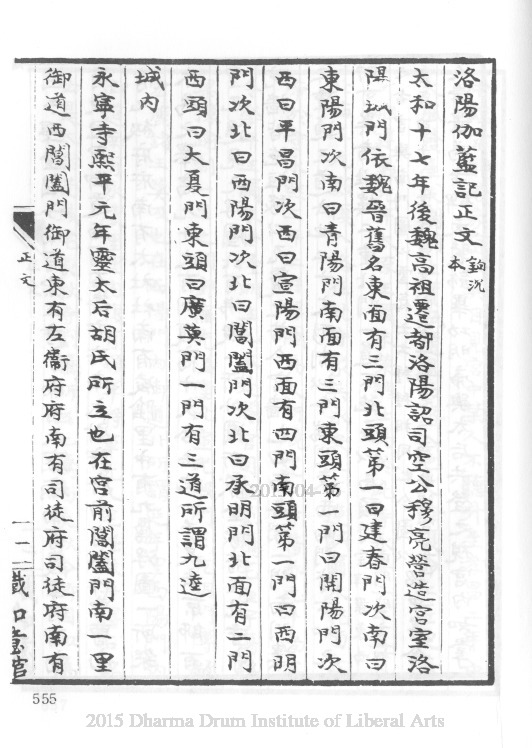 洛陽伽藍記正文 鉤沉本
太和十七年後魏高祖遷都洛陽詔司空公穆亮營造宮室洛
陽城門依魏晉舊名東面有三門北頭第一曰建春門次南曰
東陽門次南曰青陽門南面有三門東頭第一門曰開陽門次
西曰平昌門次西曰宣陽門西面有四門南頭第一門曰西明
門次北曰西陽門次北曰閶闔門次北曰承明門北面有二門
西頭曰大夏門東頭曰廣莫門一門有三道所謂九逵
城內
永寧寺熙平元年靈太后胡氏所立也在宮前閶闔門南一里
御道西閶闔門御道東有左衞府府南有司徒府司徒府南有
正文
一
555
2015 Dharma Drum Institute of Liberal Arts